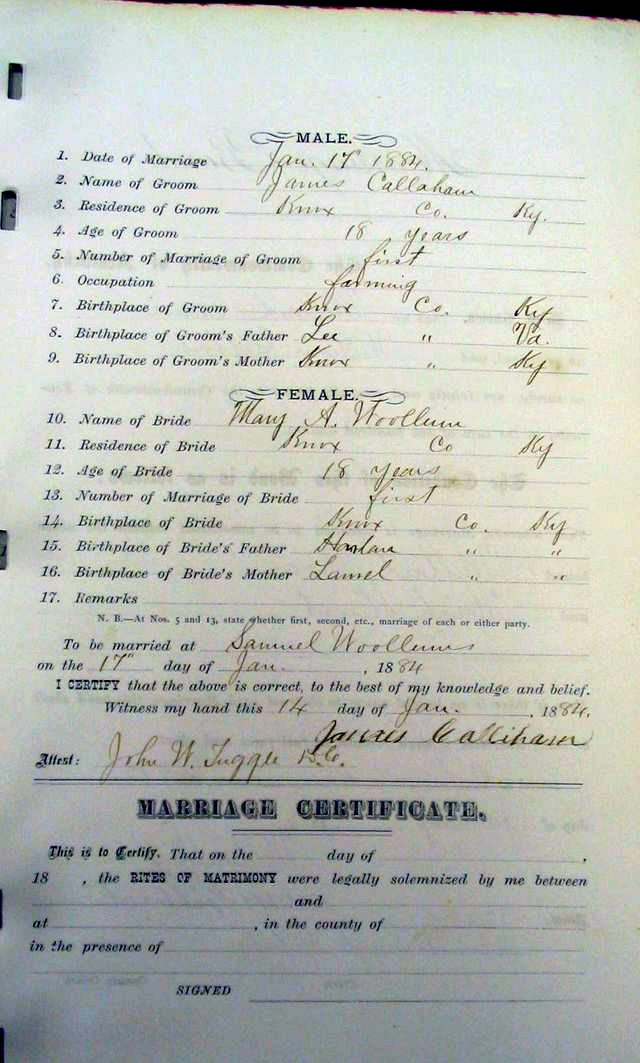 MALE.
1. Date of Marriage Jan. 17" 1884.
2. Name of Groom James Callaham
3. Residence of Groom Knox Co. Ky.
4. Age of Groom 18 years
5. Number of Marriage of Groom first
6. Occupation farming
7. Birthplace of Groom Knox Co. Ky
8. Birthplace of Groom's Father Lee " Va.
9. Birthplace of Groom's Mother Knox " Ky
FEMALE.
10. Name of Bride Mary A. Woollum
11. Residence of Bride Knox Co Ky
12. Age of Bride 18 years
13. Number of Marriage of Bride first
14. Birthplace of Bride Knox Co. Ky
15. Birthplace of Bride's Father Harlan " "
16. Birthplace of Bride's Mother Laurel " "
17. Remarks
N. B.—At Nos. 5 and 13, state whether first, second, etc., marriage of each or either party.
To be married at Samuel Woollums
on the 17" day of Jan. , 1884
I CERTIFY that the above is correct, to the best of my knowledge and belief.
Witness my hand this 14 day of Jan. , 1884.
James Calliham
Attest: John W. Tuggle D.C.
MARRIAGE CERTIFICATE.
This is to Certify, That on the day of ,
18 , the RITES OF MATRIMONY were legally solemnized by me between
and
at , in the county of
in the presence of
SIGNED